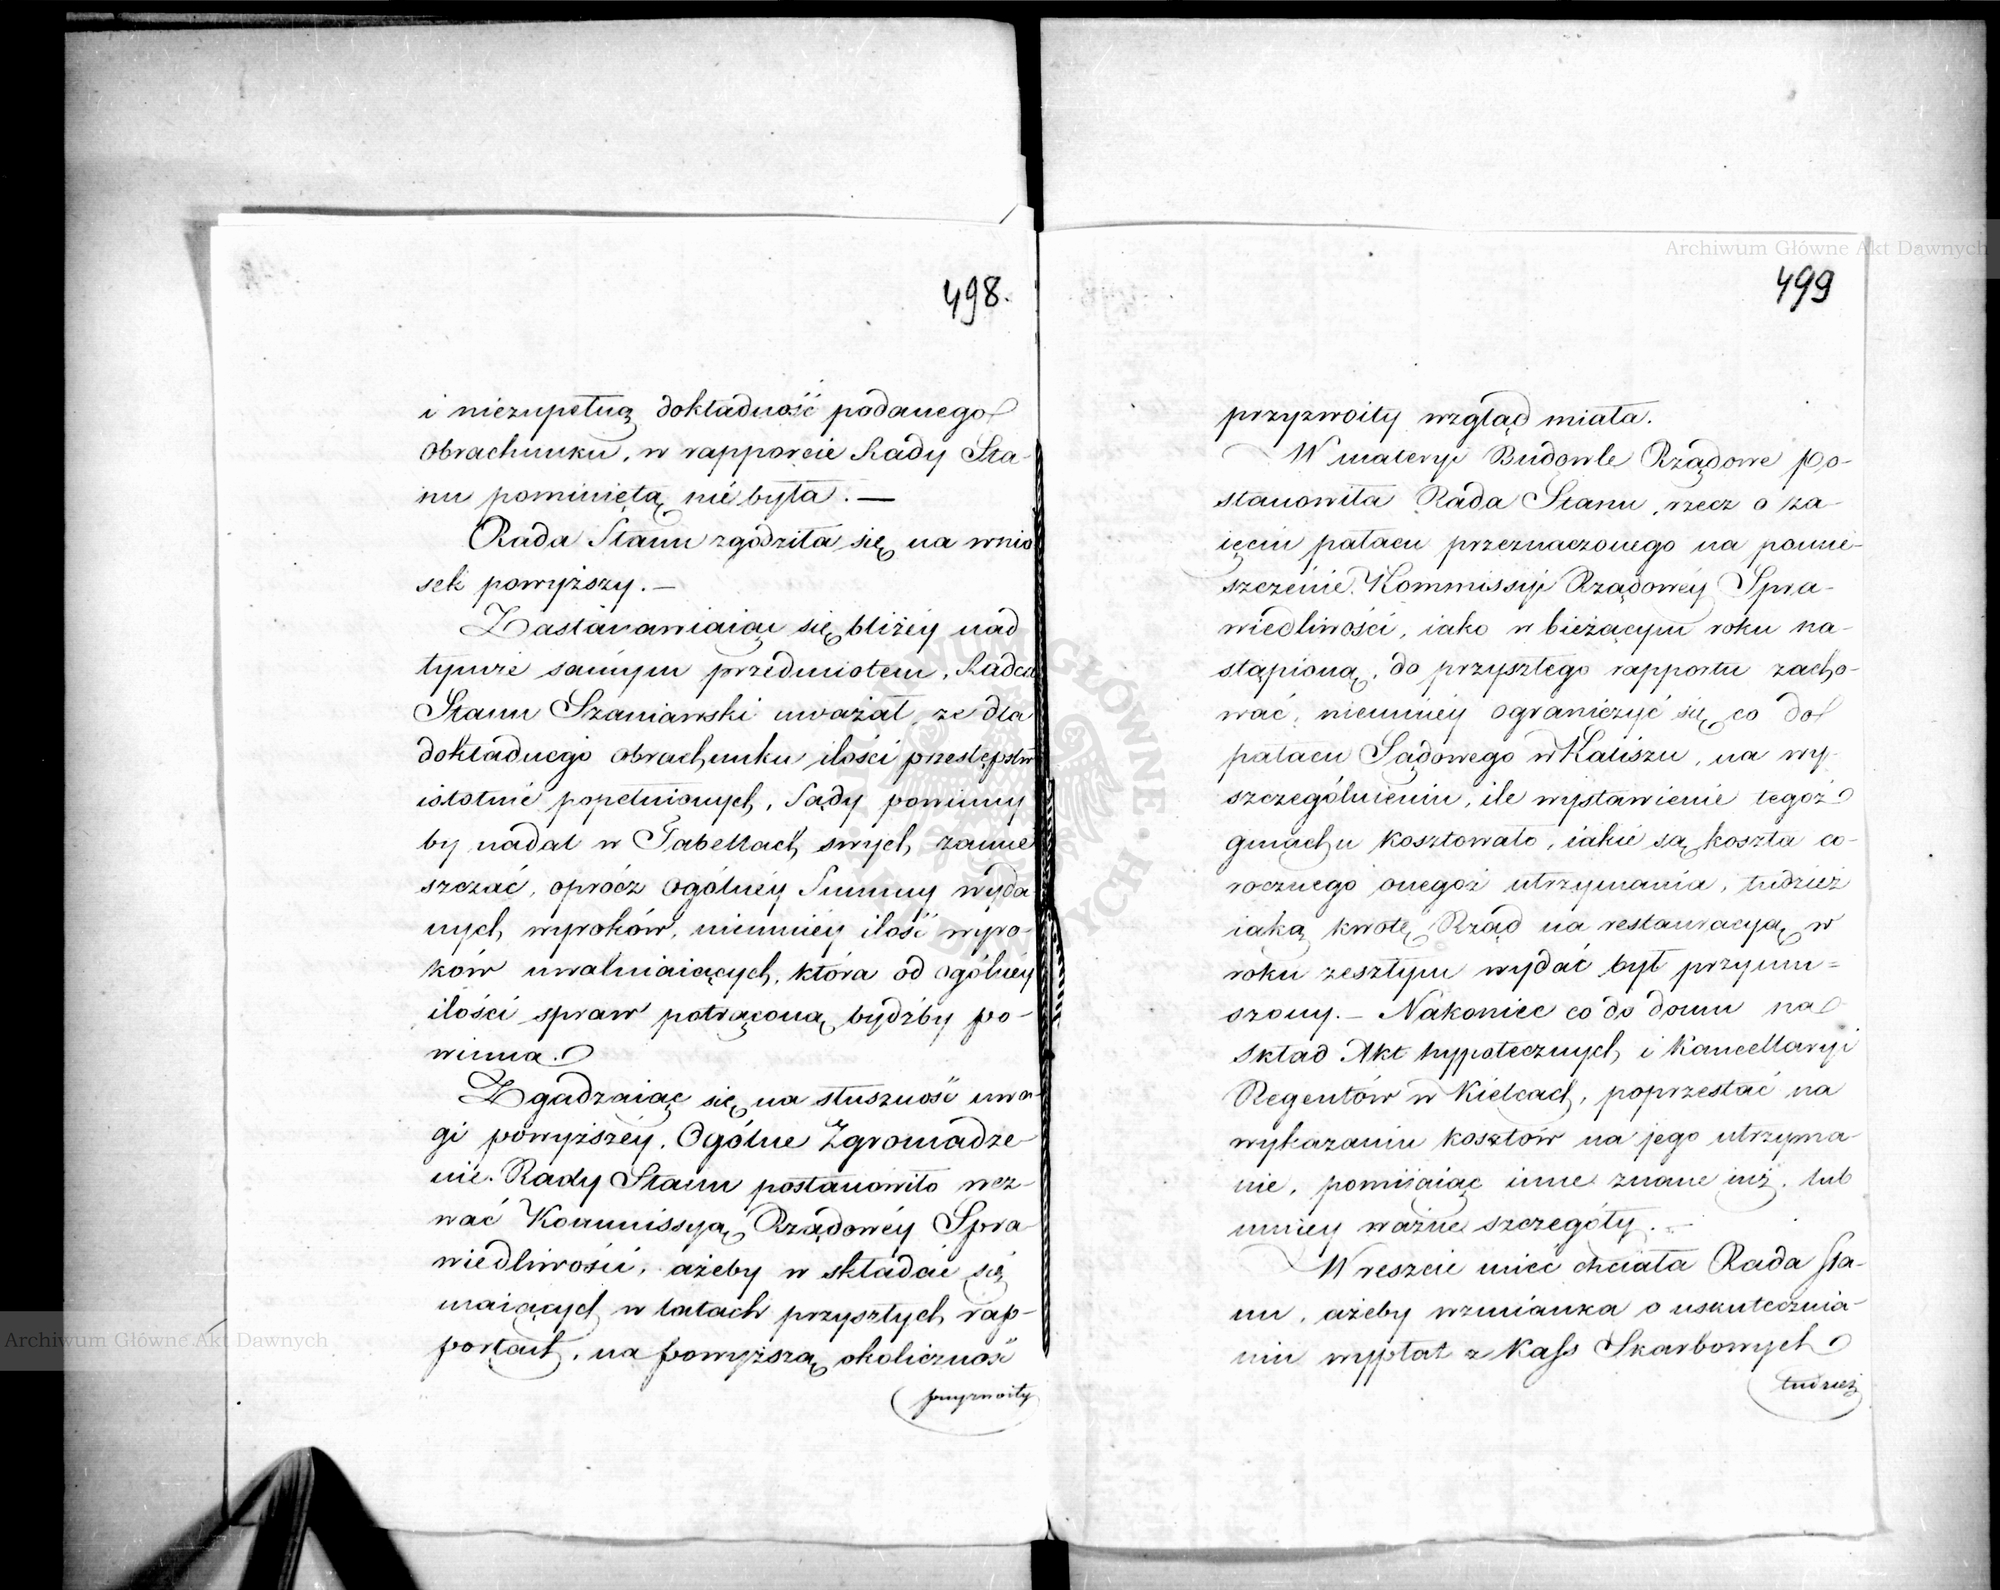 498.
i niezupełną dokładność podanego
obrachunku, w rapporcie Rady Sta-
nu pominiętą nie była. —
Rada Stanu zgodziła się na wnio
sek powyższy. —
Zastanawiaiąc się bliżéy nad
tymże samym przedmiotem, Radca
Stanu Szaniawski uważał, że dla
dokładnego obrachunku ilości przestępstw
istotnie popełnionych, Sądy powinny
by nadal w Tabellach swych zamie
szczać, oprócz ogólnéy Summy wyda
nych wyroków, niemniéy ilość wyro-
ków uwalniaiących, która od ogólnéy
ilości spraw potrąconą bydźby po-
winna.
Zgadzaiąc się na słuszność uwa-
gi powyższéy, Ogólne Zgromadze
nie Rady Stanu postanowiło wez-
wać Kommissyą Rządowéy Spra
wiedliwości, ażeby w składać się
maiących w latach przyszłych rap-
portach, na powyższą okoliczność
przyzwoity
499
przyzwoity wzgląd miała.
W materyi Budowle Rządowe po-
stanowiła Rada Stanu, rzecz o za-
ięciu pałacu przeznaczonego na pomie-
szczenie Kommissyi Rządowéy Spra-
wiedliwości, iako w bieżącym roku na-
stąpioną, do przyszłego rapportu zacho-
wać, niemniéy ograniczyć się co do
pałacu Sądowego w Kaliszu, na wy-
szczególnieniu, ile wystawienie tegoż
gmachu kosztowało, iakie są koszta co-
rocznego onegoż utrzymania, tudzież
iaką kwotę Rząd na restauracyą w
roku zeszłym wydać był przymu=
szony. — Nakoniec co do domu na
skład Akt hypotecznych i Kancellaryi
Regentów w Kielcach, poprzestać na
wykazaniu kosztów na jego utrzyma-
nie, pomiiaiąc inne znane iuż, lub
mniey ważne szczegóły. —
Wreszcie mieć chciała Rada Sta-
nu, ażeby wzmianka o uskutecznia-
niu wypłat z Kass Skarbowych
tudzież
Archiwum Główne Akt Dawnych
Archiwum Główne Akt Dawnych